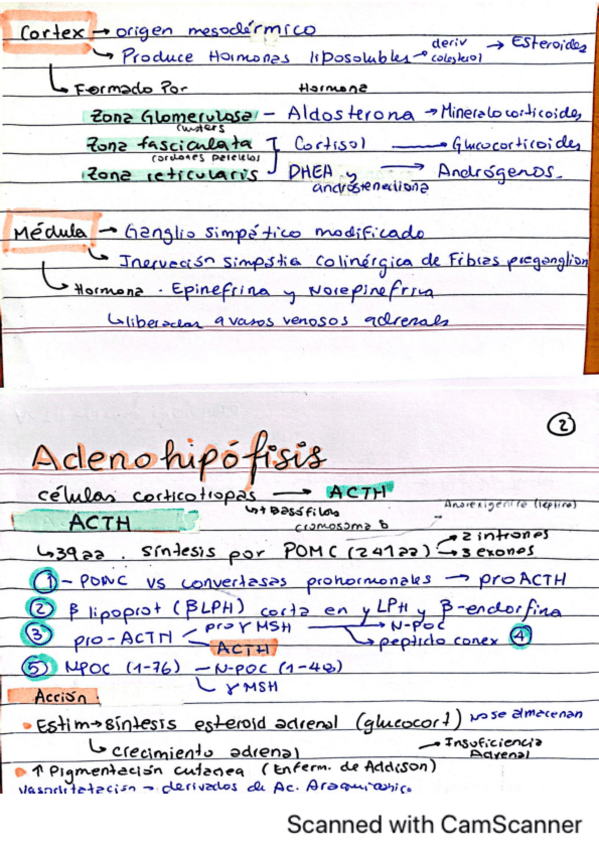 Cortex → origen mesodérmico
↳ Produce Hormonas liposolubles → deriv colesterol → Esteroides
↳ Formado Por Hormona
Zona Glomerulosa – Aldosterona → Mineralocorticoides
clusters
Zona fasciculata Cortisol → Glucocorticoides
(cordones paralelos)
Zona reticularis DHEA y androstenediona → Andrógenos
Médula → Ganglio simpático modificado
↳ Inervación simpática colinérgica de Fibras preganglion
↳ Hormona . Epinefrina y Norepinefrina
↳ liberadas a vasos venosos adrenals
2
Adenohipófisis
células corticotropas → ACTH
ACTH ↳ + Basófilas Anorexigénica (leptina)
cromosoma 6
↳ 39aa . síntesis por POMC (241aa) → 2 intrones → 3 exones
1 - POMC vs convertasas prohormonales → proACTH
2 β lipoprot (βLPH) corta en γ LPH y β-endorfina
3 pro-ACTH pro γ MSH → N-POC
ACTH → peptido conex 4
5 NPOC (1-76) – N-POC (1-48)
↳ γ MSH
Acción
Estim → síntesis esteroid adrenal (glucocort) No se almacenan
↳ crecimiento adrenal → Insuficiencia Adrenal
↑ Pigmentación cutanea (Enferm. de Addison)
Vasodilatación → derivados de Ac. Araquidónico
Scanned with CamScanner